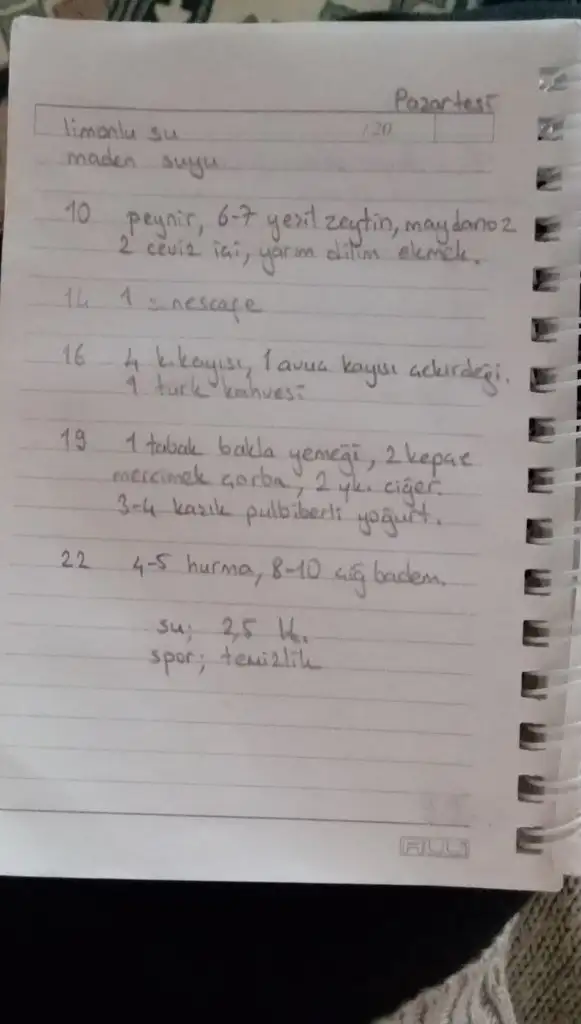 Pazartesi
limonlu su /20
maden suyu
10 peynir, 6-7 yeşil zeytin, maydanoz
2 ceviz içi, yarım dilim ekmek.
14 1 nescafe
16 4 k.kayısı, 1 avuç kayısı çekirdeği.
1 türk kahvesi
19 1 tabak bakla yemeği, 2 kepçe
mercimek çorba, 2 yk. ciğer.
3-4 kaşık pulbiberli yoğurt.
22 4-5 hurma, 8-10 çiğ badem.
su; 2,5 lt.
spor; temizlik